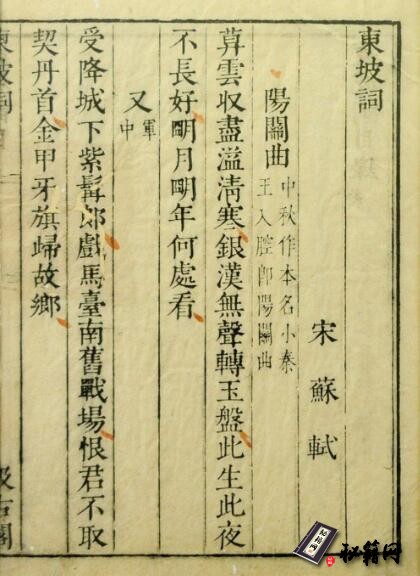 東坡詞
宋 蘇 軾
陽關曲
中秋作本名小秦
王入腔卽陽關曲
暮雲収盡溢清寒銀漢無聲轉玉盤此生此夜
不長好明月明年何處看
又
軍
中
受降城下紫髯郎戲馬臺南舊戰場恨君不取
契丹首金甲牙旗歸故鄉
東坡詞
汲古閣
秘籍网